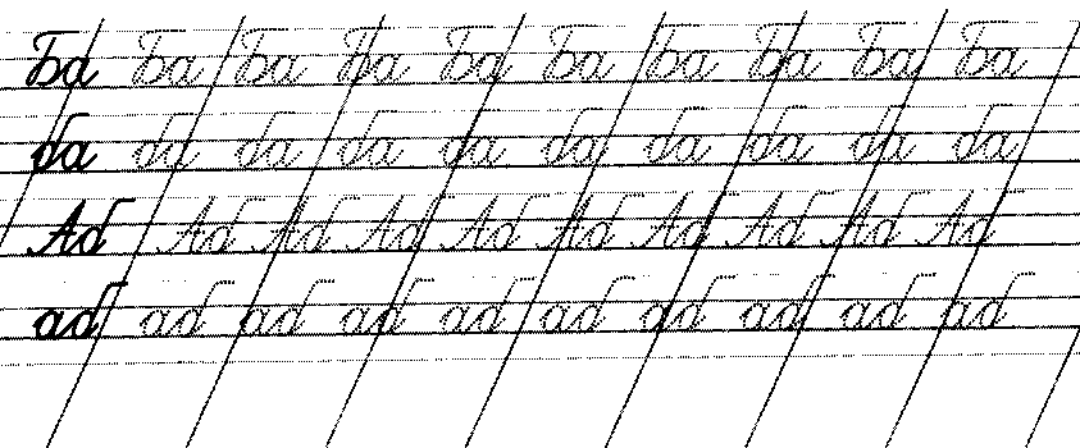 Ба Ба Ба Ба Ба Ба Ба Ба Ба Ба
ба ба ба ба ба ба ба ба ба ба
Аб Аб Аб Аб Аб Аб Аб Аб Аб Аб
аб аб аб аб аб аб аб аб аб аб